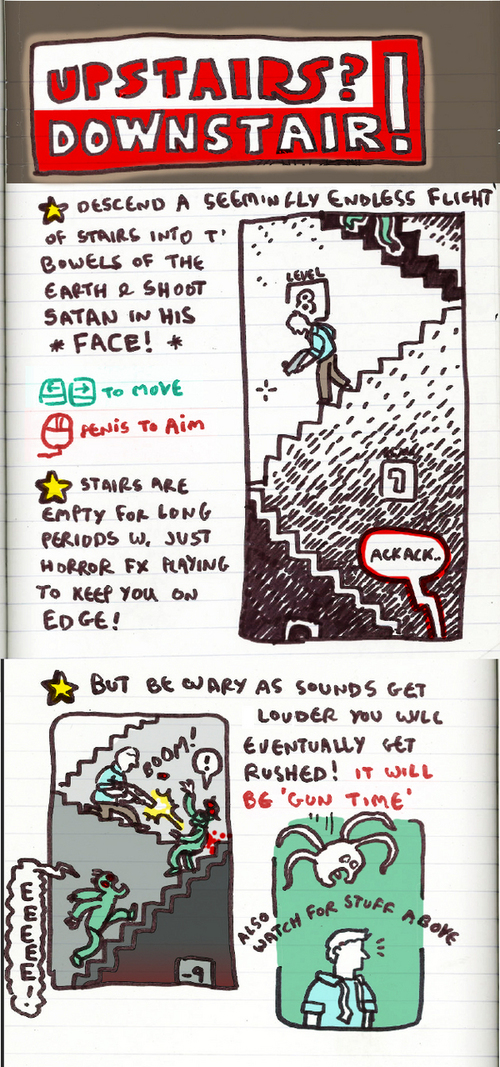 UPSTAIRS?
DOWNSTAIR!
DESCEND A SEEMINGLY ENDLESS FLIGHT
OF STAIRS INTO T'
BOWELS OF THE
EARTH & SHOOT
SATAN IN HIS
* FACE! *
TO MOVE
PENIS TO AIM
STAIRS ARE
EMPTY FOR LONG
PERIODS W. JUST
HORROR FX PLAYING
TO KEEP YOU ON
EDGE!
LEVEL
8
7
ACK ACK..
BUT BE WARY AS SOUNDS GET
LOUDER YOU WILL
EVENTUALLY GET
RUSHED! IT WILL
BE 'GUN TIME'
BOOM!
!
EEEEEE!
-9
ALSO
WATCH FOR STUFF ABOVE